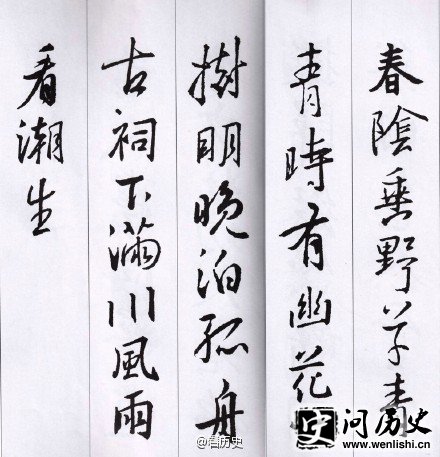 春陰垂野草青
青時有幽花一
樹明晚泊孤舟
古祠下滿川風雨
看潮生
@看历史
史 问历史
www.wenlishi.cn